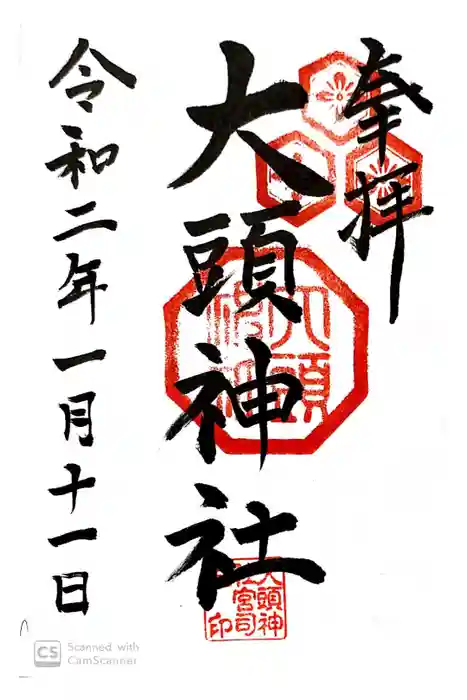 奉拝
大頭神社
令和二年一月十一日
大頭神
社宮司
印
Scanned with
CS
CamScanner